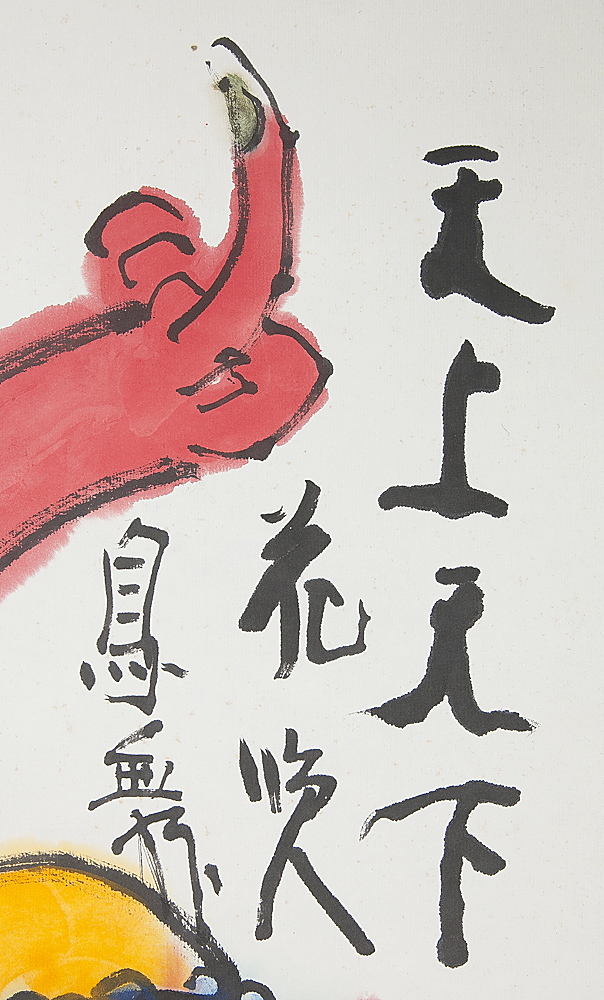 天上天下
花咲
鳥舞